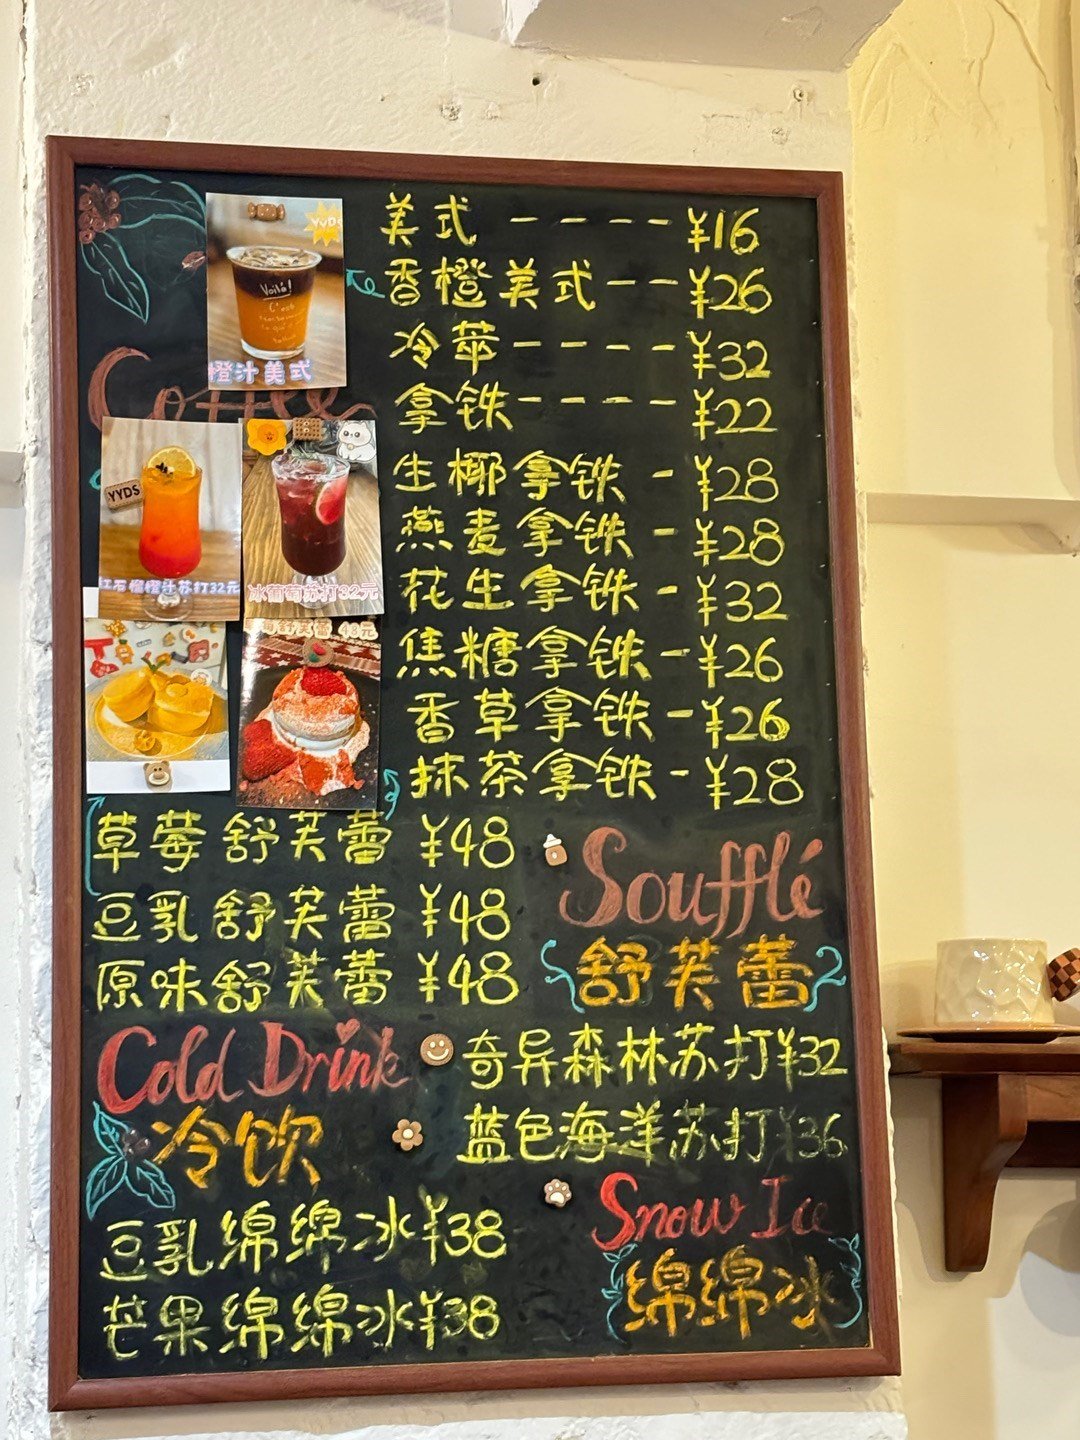 美式 - - - - ¥16
香橙美式 - - ¥26
冷萃 - - - - ¥32
拿铁 - - - - ¥22
生椰拿铁 - ¥28
燕麦拿铁 - ¥28
花生拿铁 - ¥32
焦糖拿铁 - ¥26
香草拿铁 - ¥26
抹茶拿铁 - ¥28
Coffee
YYDS
Voilà!
C'est
橙汁美式
YYDS
红石榴橙汁苏打32元
冰葡萄苏打32元
48元
草莓舒芙蕾 ¥48
豆乳舒芙蕾 ¥48
原味舒芙蕾 ¥48
Soufflé
舒芙蕾
Cold Drink
冷饮
奇异森林苏打¥32
蓝色海洋苏打¥36
豆乳绵绵冰¥38
芒果绵绵冰¥38
Snow Ice
绵绵冰